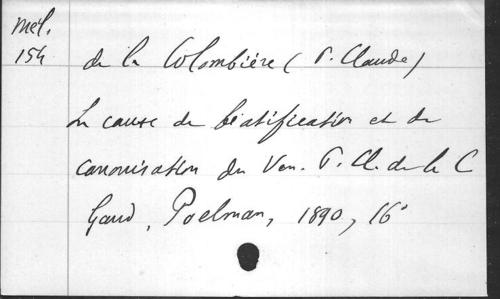 Mél.
154
de la Colombière (P. Claude)
La cause de béatification et de
canonisation du Ven. P. Cl. de la C
Gand, Poelman, 1890, 16°